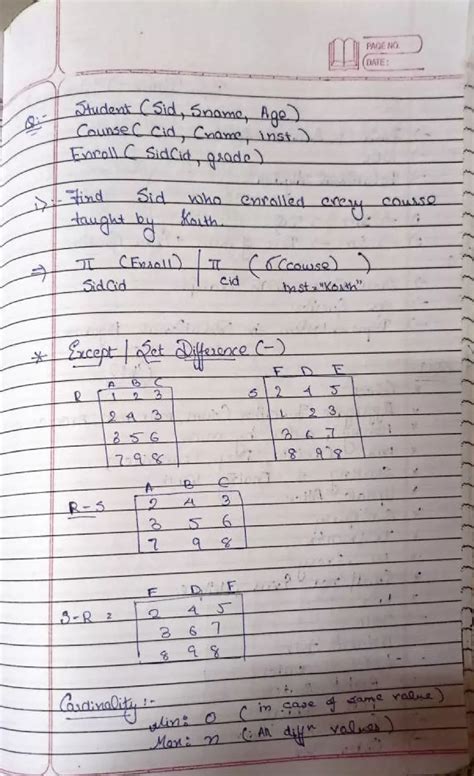 PAGE NO.
DATE:
Q:- Student (Sid, Sname, Age)
Course ( Cid, Cname, Inst.)
Enroll ( SidCid, grade)
i) :- Find Sid who enrolled every course
taught by Korth.
⇒ π (Enroll) | π (σ(course) )
SidCid Cid Inst="Korth"
* Except | Set Difference (-)
A B C
R 1 2 3
2 4 3
3 5 6
7 9 8
F D E
S 2 4 5
1 2 3
3 6 7
8 9 8
A B C
R-S 2 4 3
3 5 6
7 9 8
F D F
S-R = 2 4 5
3 6 7
8 9 8
Cardinality :-
Min: 0 ( in case of same value)
Max: n (: All diffn values)